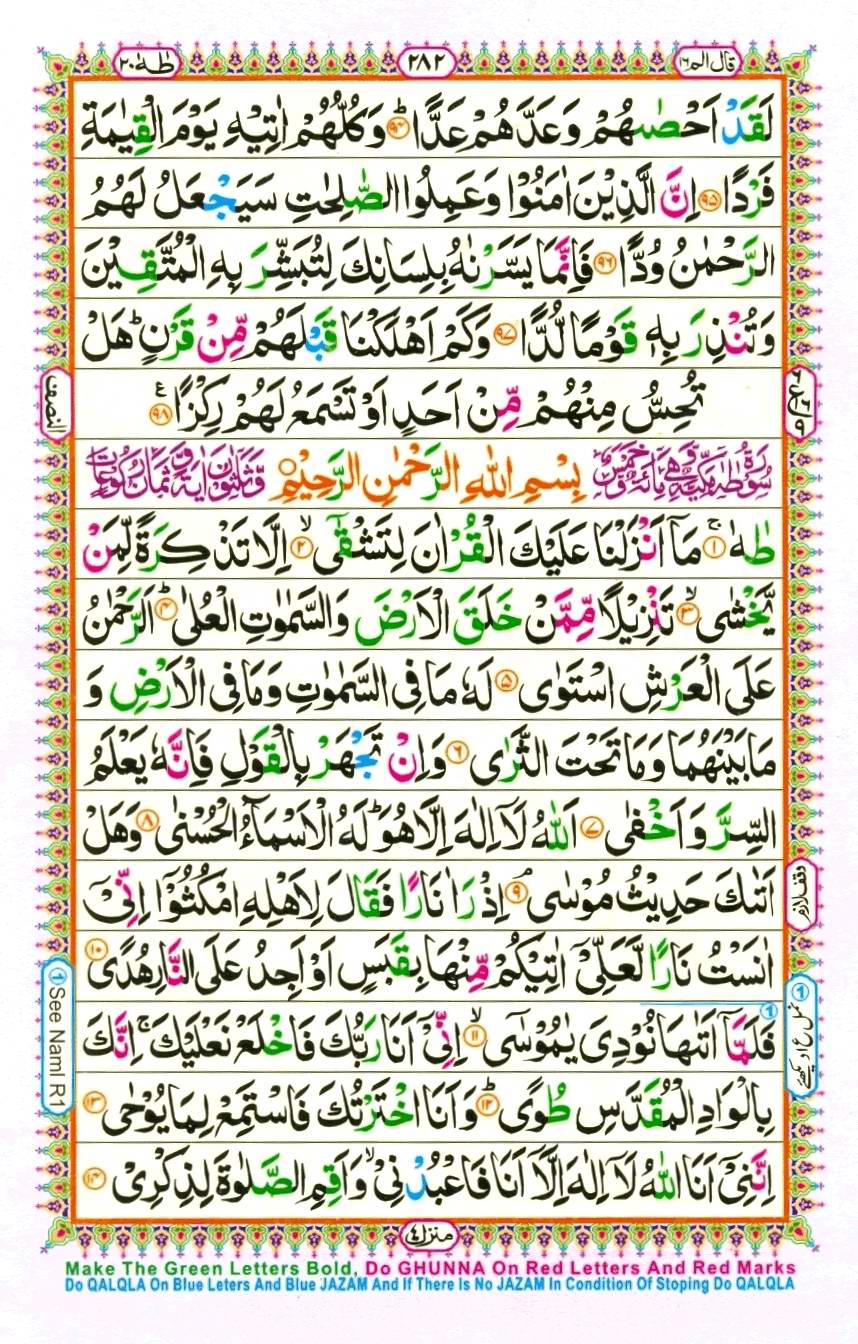 قال الم ١٦ ٢٨٢ طٰهٰ ٢٠
لَقَدْ اَحْصٰىهُمْ وَعَدَّهُمْ عَدًّا ؕ ۹۴ وَكُلُّهُمْ اٰتِيْهِ يَوْمَ الْقِيٰمَةِ
فَرْدًا ۹۵ اِنَّ الَّذِيْنَ اٰمَنُوْا وَعَمِلُوا الصّٰلِحٰتِ سَيَجْعَلُ لَهُمُ
الرَّحْمٰنُ وُدًّا ۹۶ فَاِنَّمَا يَسَّرْنٰهُ بِلِسَانِكَ لِتُبَشِّرَ بِهِ الْمُتَّقِيْنَ
وَتُنْذِرَ بِهٖ قَوْمًا لُّدًّا ۹۷ وَكَمْ اَهْلَكْنَا قَبْلَهُمْ مِّنْ قَرْنٍ ؕ هَلْ
تُحِسُّ مِنْهُمْ مِّنْ اَحَدٍ اَوْ تَسْمَعُ لَهُمْ رِكْزًا ۹۸ ع
النصف
سُوْرَةُ طٰهٰ مَكِّيَّةٌ وَّهِيَ مِائَةٌ وَّخَمْسٌ بِسْمِ اللّٰهِ الرَّحْمٰنِ الرَّحِيْمِ وَّثَلٰثُوْنَ اٰيَةً وَّثَمَانُ رُكُوْعَاتٍ
طٰهٰ ۚ ۱ مَاۤ اَنْزَلْنَا عَلَيْكَ الْقُرْاٰنَ لِتَشْقٰۤى ۙ ۲ اِلَّا تَذْكِرَةً لِّمَنْ
يَّخْشٰى ۙ ۳ تَنْزِيْلًا مِّمَّنْ خَلَقَ الْاَرْضَ وَالسَّمٰوٰتِ الْعُلٰى ؕ ۴ اَلرَّحْمٰنُ
عَلَى الْعَرْشِ اسْتَوٰى ۵ لَهٗ مَا فِى السَّمٰوٰتِ وَمَا فِى الْاَرْضِ وَ
مَا بَيْنَهُمَا وَمَا تَحْتَ الثَّرٰى ۶ وَاِنْ تَجْهَرْ بِالْقَوْلِ فَاِنَّهٗ يَعْلَمُ
السِّرَّ وَاَخْفٰى ۷ اَللّٰهُ لَاۤ اِلٰهَ اِلَّا هُوَ ؕ لَهُ الْاَسْمَآءُ الْحُسْنٰى ۸ وَهَلْ
اَتٰىكَ حَدِيْثُ مُوْسٰى ۘ ۹ اِذْ رَاٰ نَارًا فَقَالَ لِاَهْلِهِ امْكُثُوْۤا اِنِّىْۤ
وقف لازم
اٰنَسْتُ نَارًا لَّعَلِّىْۤ اٰتِيْكُمْ مِّنْهَا بِقَبَسٍ اَوْ اَجِدُ عَلَى النَّارِ هُدًى ۱۰
فَلَمَّاۤ اَتٰىهَا نُوْدِىَ يٰمُوْسٰى ؕ ۱۱ اِنِّىْۤ اَنَا رَبُّكَ فَاخْلَعْ نَعْلَيْكَ ۚ اِنَّكَ
① See Naml R1
بِالْوَادِ الْمُقَدَّسِ طُوًى ؕ ۱۲ وَاَنَا اخْتَرْتُكَ فَاسْتَمِعْ لِمَا يُوْحٰى ۱۳
اِنَّنِىْۤ اَنَا اللّٰهُ لَاۤ اِلٰهَ اِلَّاۤ اَنَا فَاعْبُدْنِىْ ۙ وَاَقِمِ الصَّلٰوةَ لِذِكْرِىْ ۱۴
منزل ۴
Make The Green Letters Bold, Do GHUNNA On Red Letters And Red Marks
Do QALQLA On Blue Leters And Blue JAZAM And If There Is No JAZAM In Condition Of Stoping Do QALQLA